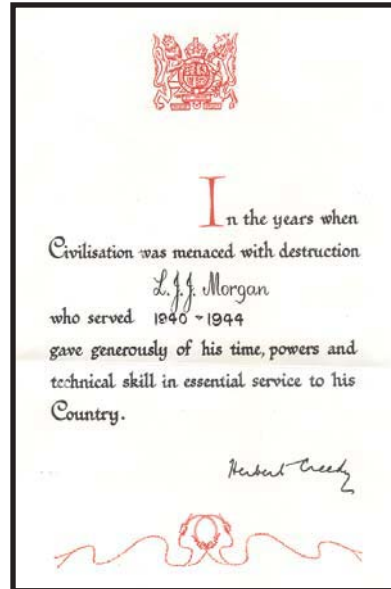 In the years when
Civilisation was menaced with destruction
L.J.J. Morgan
who served 1940 - 1944
gave generously of his time, powers and
technical skill in essential service to his
Country.
Herbert Creedy